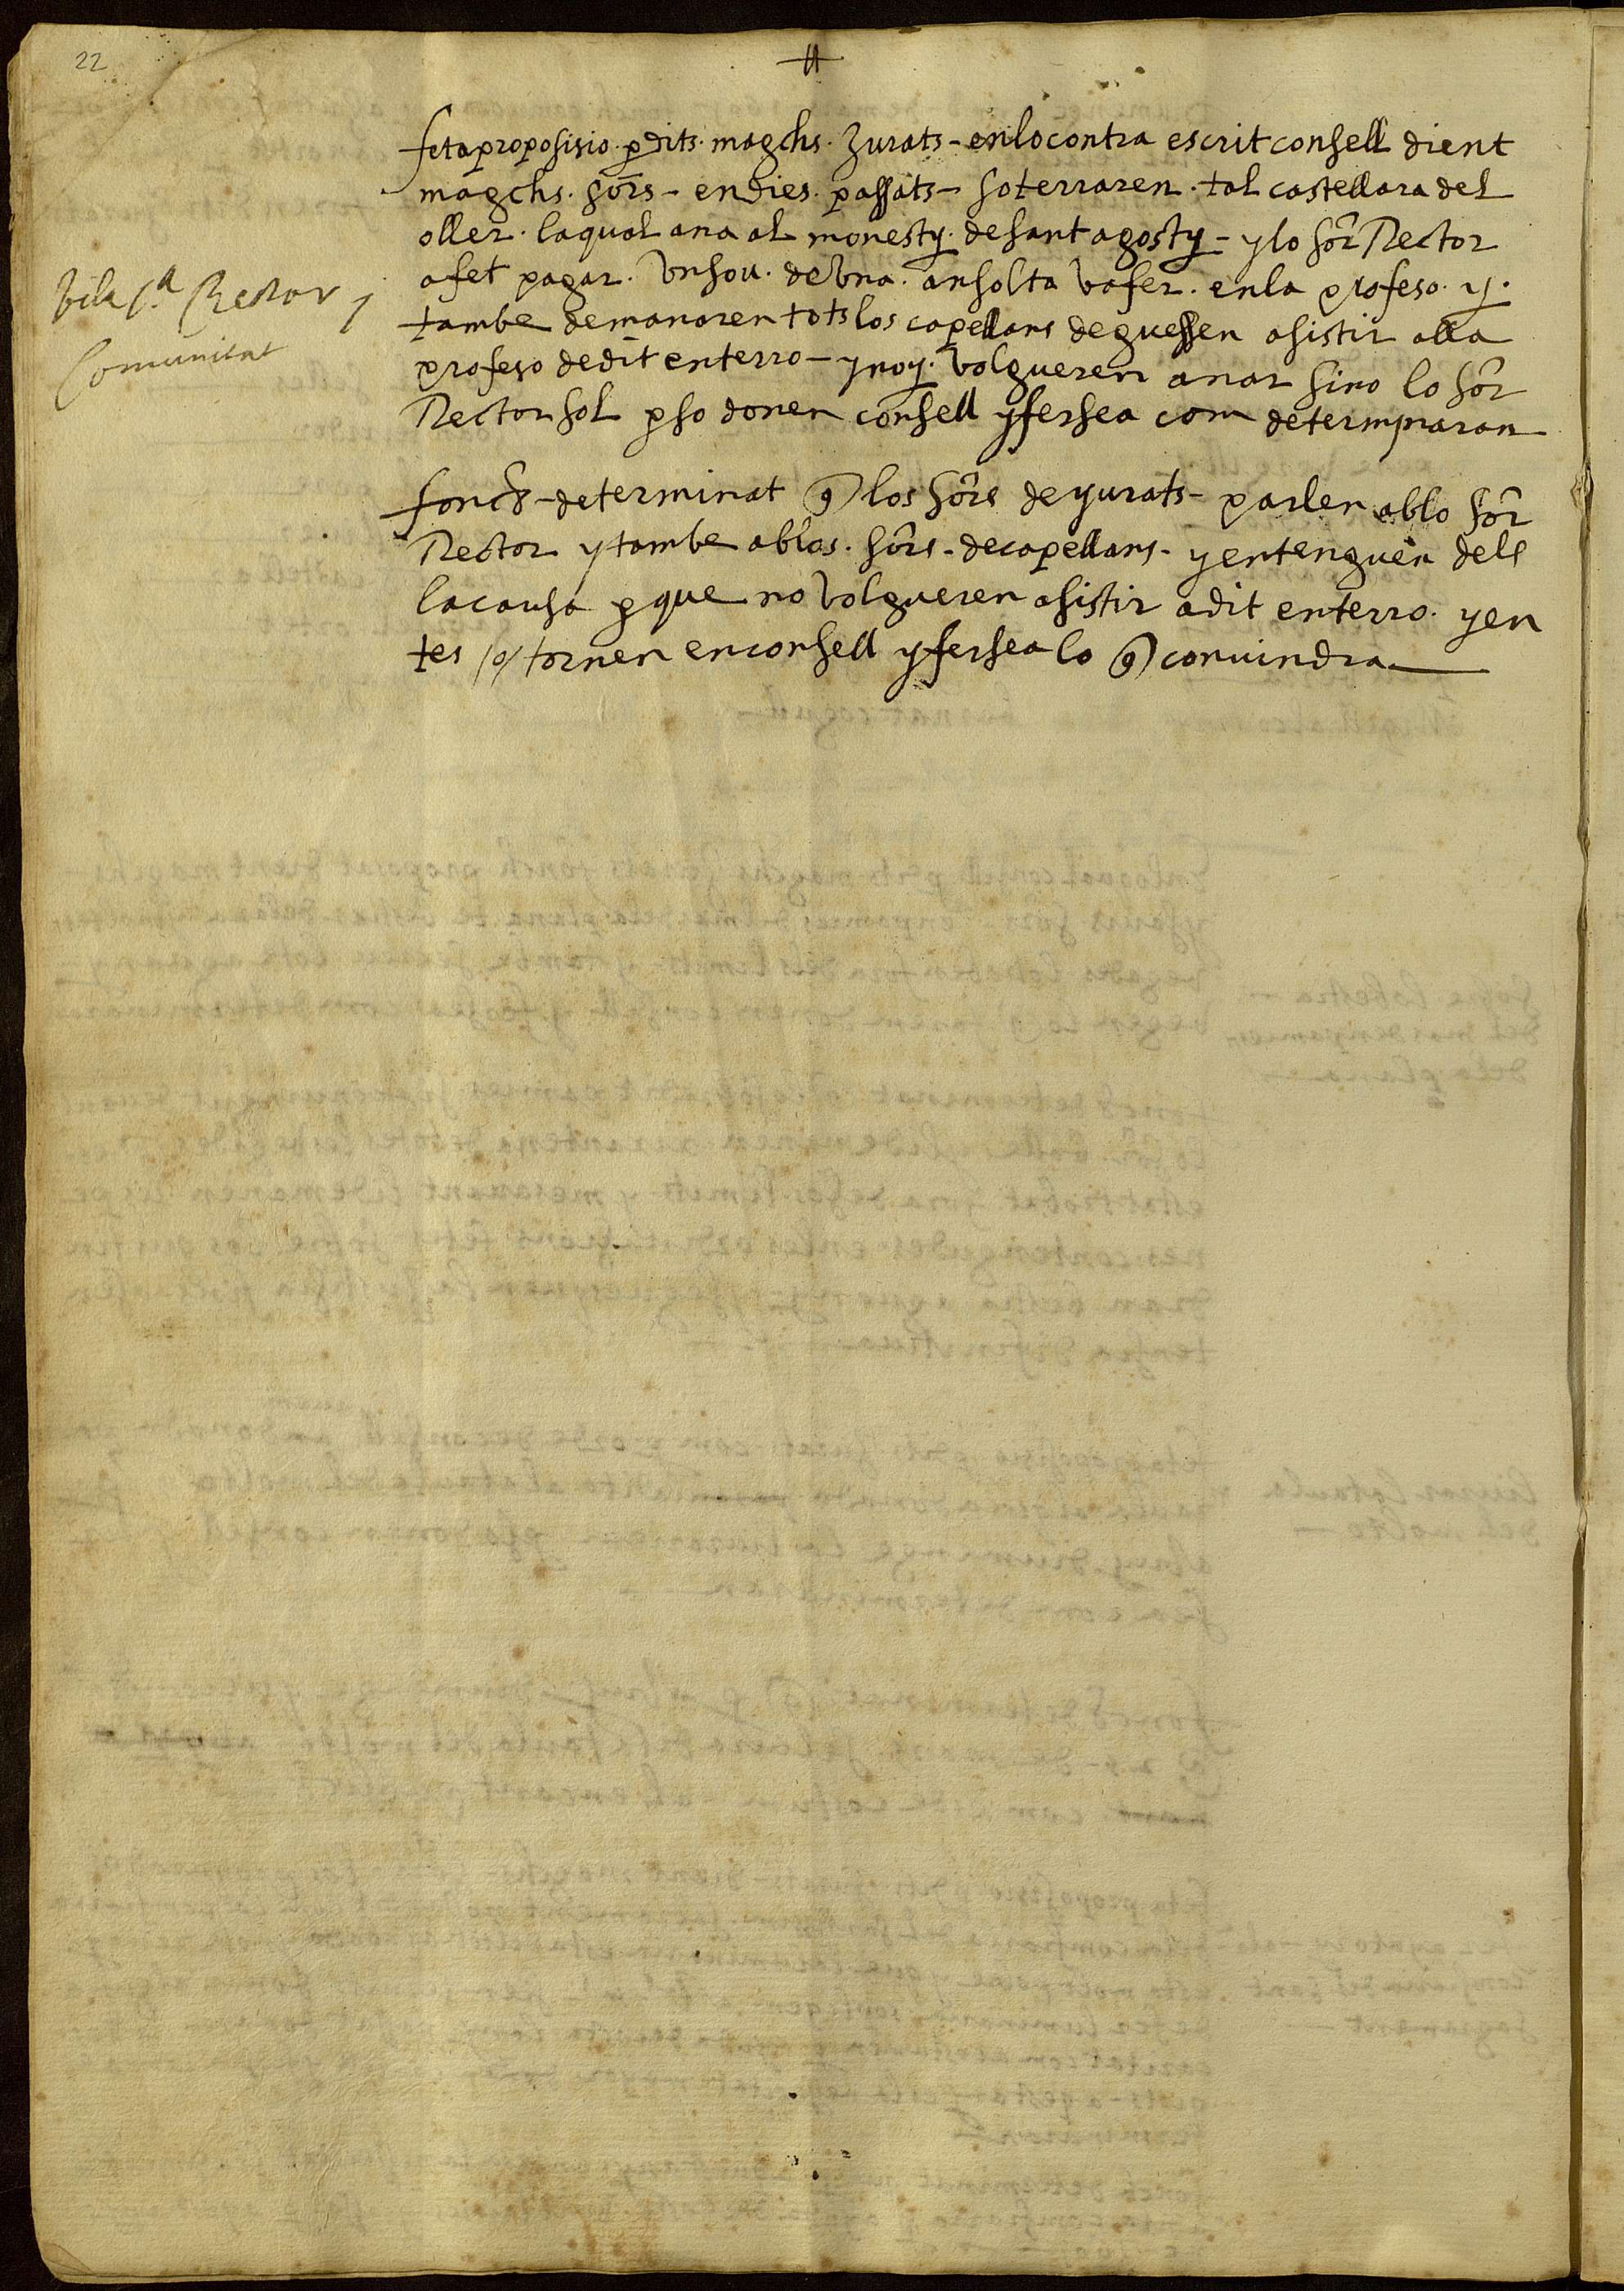 22
feta proposisio p dits magchs. Jurats - en lo contra escrit consell dient
magchs. sors - en dies passats - soterraren tal castellara del
oller. la qual ana al monesty. de sant agosty - y lo sor Rector
a fet pagar. un sou. de una. ansolta va fer. en la profeso. y.
tambe demanaren tots los capellans deguessen asistir alla
profeso de dit enterro - y noy. volgueren anar sino lo sor
Rector sol p so donen consell y fersea com determynaran
vila pa. Rector y
Comunitat
fonch - determinat q los sors de yurats - parlen ab lo sor
Rector y tambe ab los. sors - de capellans - y entenguen dells
la causa p que no volgueren asistir a dit enterro. y en
tes so tornen en consell y fersea lo q convindra